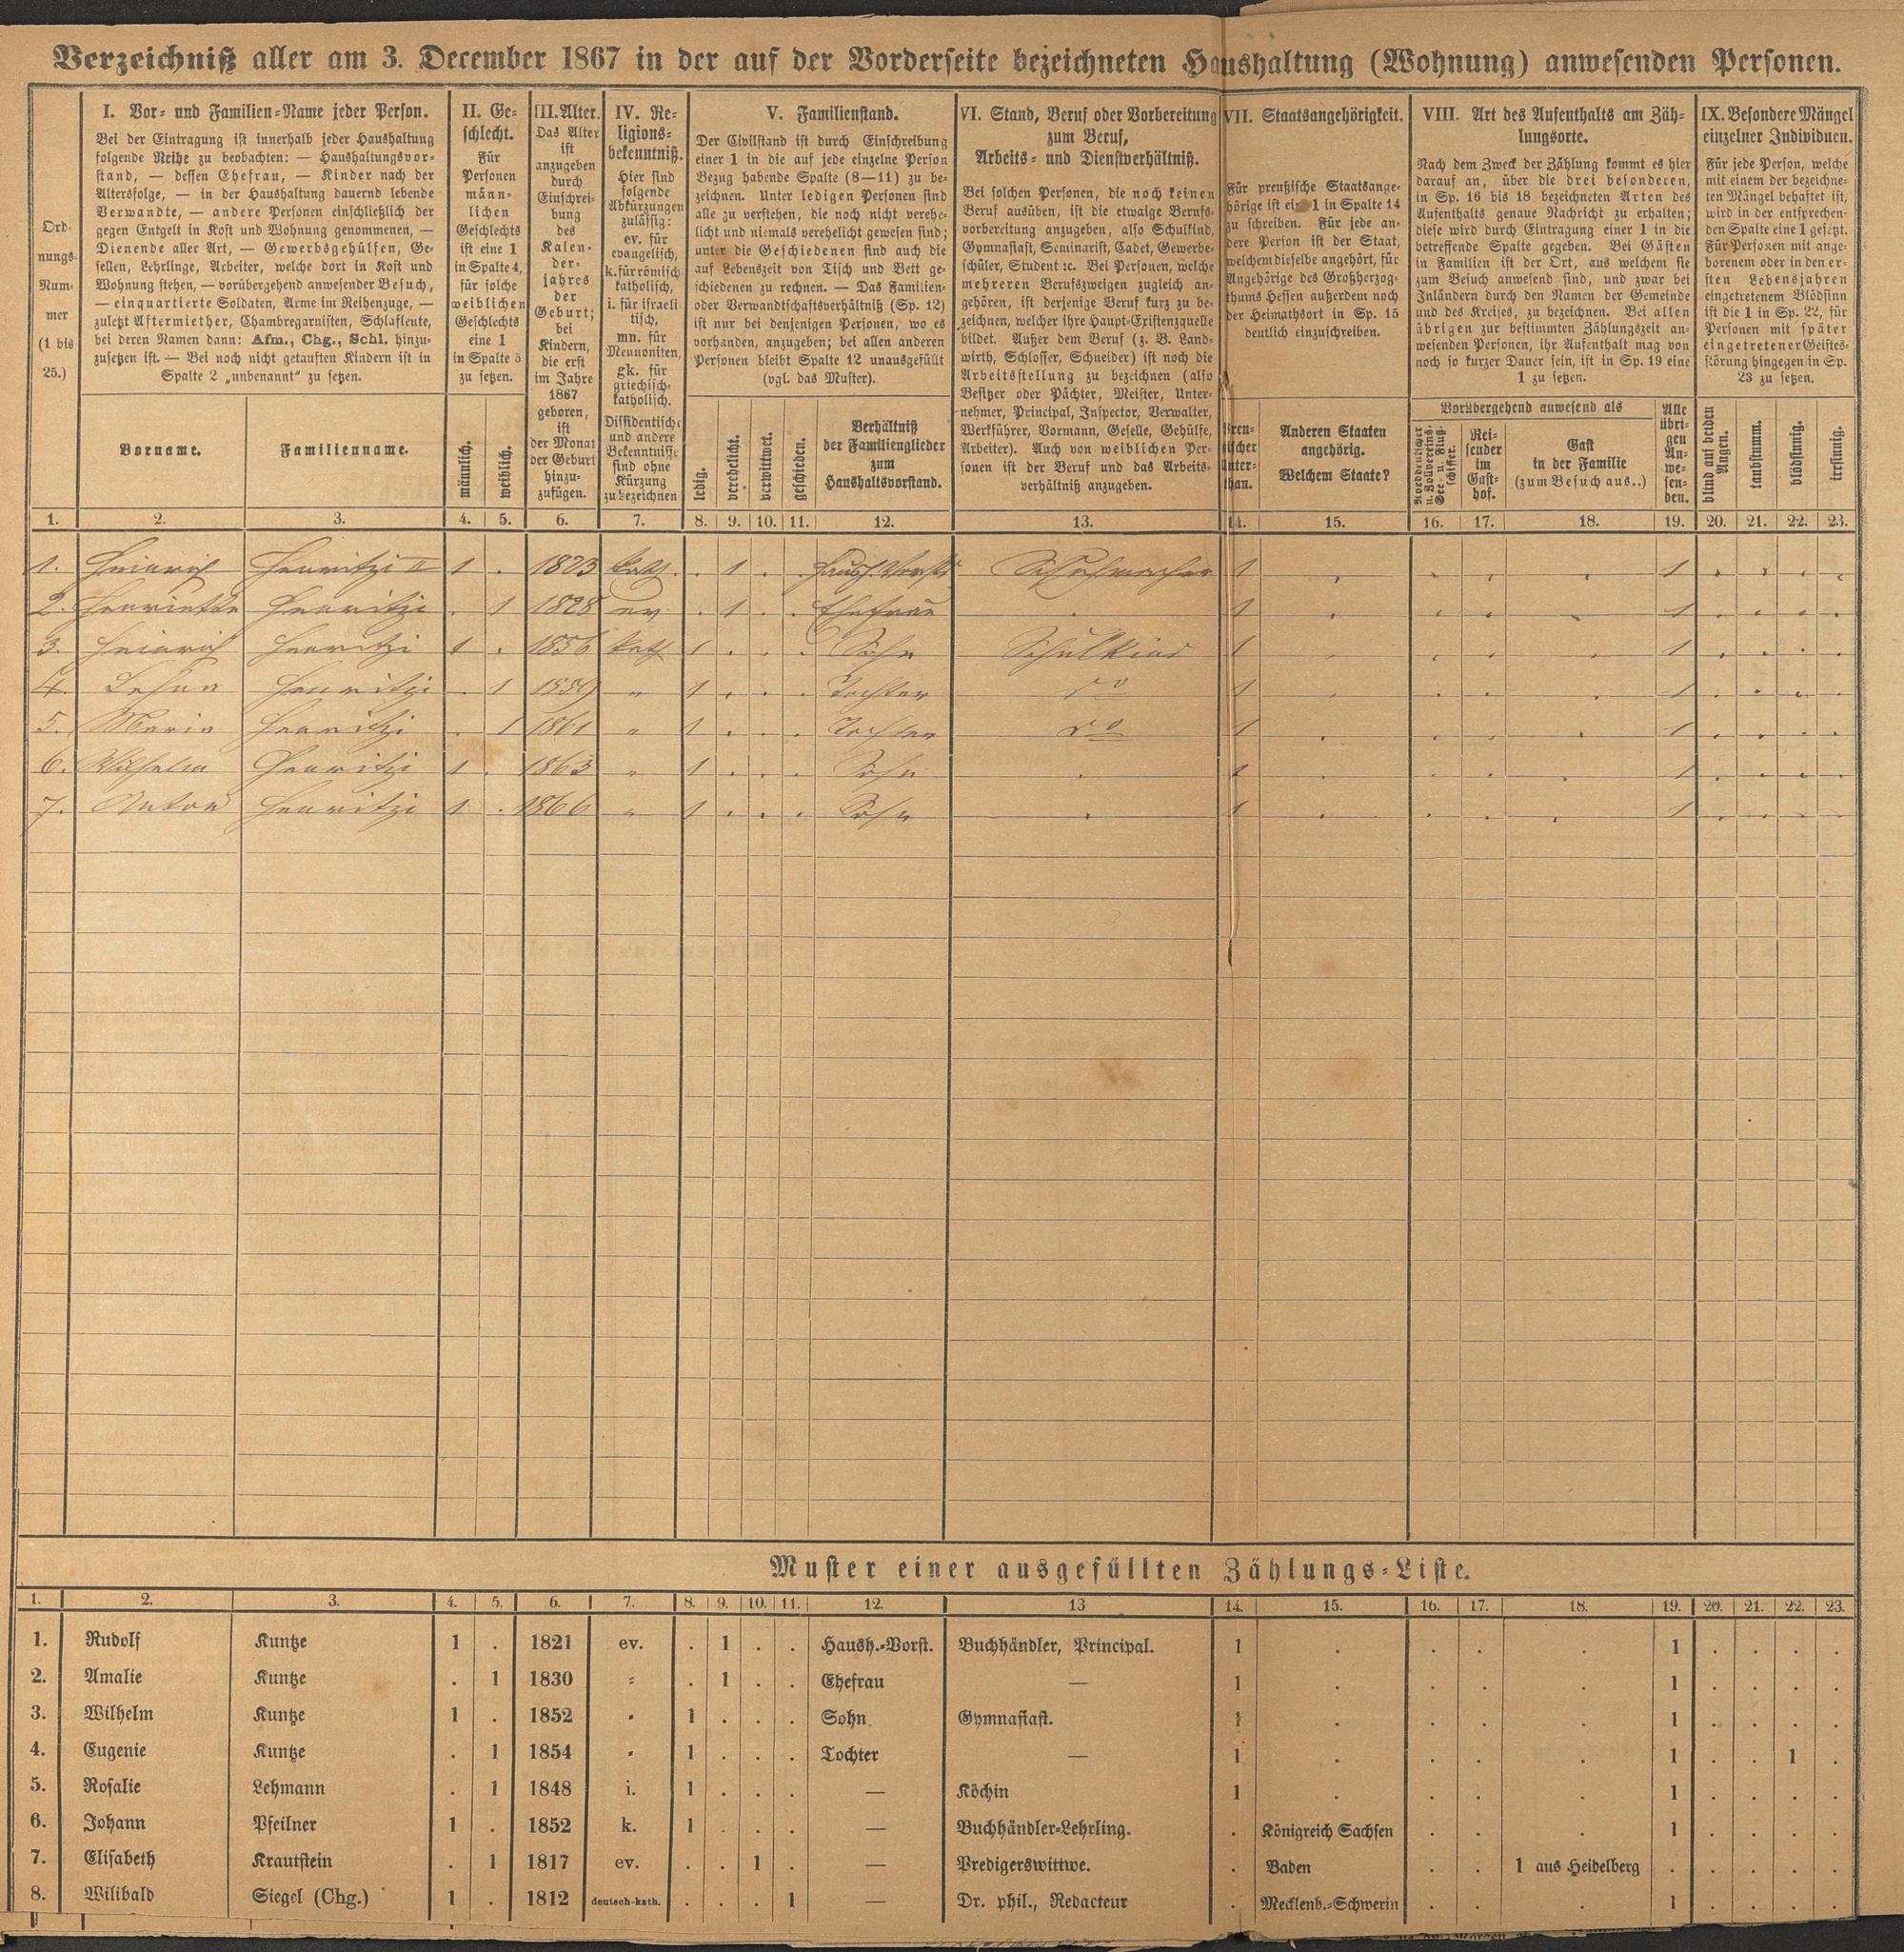 Verzeichniß aller am 3. December 1867 in der auf der Vorderseite bezeichneten Haushaltung (Wohnung) anwesenden Personen.
Ord-
nungs-
Num-
mer
(1 bis
25.)
I. Vor- und Familien-Name jeder Person.
Bei der Eintragung ist innerhalb jeder Haushaltung
folgende Reihe zu beobachten: — Haushaltungsvor-
stand, — dessen Ehefrau, — Kinder nach der
Altersfolge, — in der Haushaltung dauernd lebende
Verwandte, — andere Personen einschließlich der
gegen Entgelt in Kost und Wohnung genommenen, —
Dienende aller Art, — Gewerbsgehülfen, Ge-
sellen, Lehrlinge, Arbeiter, welche dort in Kost und
Wohnung stehen, — vorübergehend anwesender Besuch,
— einquartierte Soldaten, Arme im Reihenzuge, —
zuletzt Aftermiether, Chambregarnisten, Schlafleute,
bei deren Namen dann: Afm., Chg., Schl. hinzu-
zusetzen ist. — Bei noch nicht getauften Kindern ist in
Spalte 2 „unbenannt“ zu setzen.
Vorname.
Familienname.
II. Ge-
schlecht.
Für
Personen
männ-
lichen
Geschlechts
ist eine 1
in Spalte 4,
für solche
weiblichen
Geschlechts
eine 1
in Spalte 5
zu setzen.
männlich.
weiblich.
III. Alter.
Das Alter
ist
anzugeben
durch
Einschrei-
bung
des
Kalen-
der-
jahres
der
Geburt;
bei
Kindern,
die erst
im Jahre
1867
geboren,
ist
der Monat
der Geburt
hinzu-
zufügen.
IV. Re-
ligions-
bekenntniß.
Hier sind
folgende
Abkürzungen
zulässig:
ev. für
evangelisch,
k. für römisch-
katholisch,
i. für israeli-
tisch,
mn. für
Mennoniten,
gk. für
griechisch-
katholisch.
Dissidentische
und andere
Bekenntnisse
sind ohne
Kürzung
zu bezeichnen
V. Familienstand.
Der Civilstand ist durch Einschreibung
einer 1 in die auf jede einzelne Person
Bezug habende Spalte (8—11) zu be-
zeichnen. Unter ledigen Personen sind
alle zu verstehen, die noch nicht verehe-
licht und niemals verehelicht gewesen sind;
unter die Geschiedenen sind auch die
auf Lebenszeit von Tisch und Bett ge-
schiedenen zu rechnen. — Das Familien-
oder Verwandtschaftsverhältniß (Sp. 12)
ist nur bei denjenigen Personen, wo es
vorhanden, anzugeben; bei allen anderen
Personen bleibt Spalte 12 unausgefüllt
(vgl. das Muster).
ledig.
verehelicht.
verwittwet.
geschieden.
Verhältniß
der Familienglieder
zum
Haushaltsvorstand.
VI. Stand, Beruf oder Vorbereitung
zum Beruf,
Arbeits- und Dienstverhältniß.
Bei solchen Personen, die noch keinen
Beruf ausüben, ist die etwaige Berufs-
vorbereitung anzugeben, also Schulkind,
Gymnasiast, Seminarist, Cadet, Gewerbe-
schüler, Student ꝛc. Bei Personen, welche
mehreren Berufszweigen zugleich an-
gehören, ist derjenige Beruf kurz zu be-
zeichnen, welcher ihre Haupt-Existenzquelle
bildet. Außer dem Beruf (z. B. Land-
wirth, Schlosser, Schneider) ist noch die
Arbeitsstellung zu bezeichnen (also
Besitzer oder Pächter, Meister, Unter-
nehmer, Principal, Inspector, Verwalter,
Werkführer, Vormann, Geselle, Gehülfe,
Arbeiter). Auch von weiblichen Per-
sonen ist der Beruf und das Arbeits-
verhältniß anzugeben.
VII. Staatsangehörigkeit.
Für preußische Staatsange-
hörige ist eine 1 in Spalte 14
zu schreiben. Für jede an-
dere Person ist der Staat,
welchem dieselbe angehört, für
Angehörige des Großherzog-
thums Hessen außerdem noch
der Heimathsort in Sp. 15
deutlich einzuschreiben.
Preu-
ßischer
Unter-
than.
Anderen Staaten
angehörig.
Welchem Staate?
VIII. Art des Aufenthalts am Zäh-
lungsorte.
Nach dem Zweck der Zählung kommt es hier
darauf an, über die drei besonderen,
in Sp. 16 bis 18 bezeichneten Arten des
Aufenthalts genaue Nachricht zu erhalten;
diese wird durch Eintragung einer 1 in die
betreffende Spalte gegeben. Bei Gästen
in Familien ist der Ort, aus welchem sie
zum Besuch anwesend sind, und zwar bei
Inländern durch den Namen der Gemeinde
und des Kreises, zu bezeichnen. Bei allen
übrigen zur bestimmten Zählungszeit an-
wesenden Personen, ihr Aufenthalt mag von
noch so kurzer Dauer sein, ist in Sp. 19 eine
1 zu setzen.
Vorübergehend anwesend als
Norddeutscher
u. Zollvereins-
See- u. Fluß-
schiffer.
Rei-
sender
im
Gast-
hof.
Gast
in der Familie
(zum Besuch aus..)
Alle
übri-
gen
An-
we-
sen-
den.
IX. Besondere Mängel
einzelner Individuen.
Für jede Person, welche
mit einem der bezeichne-
ten Mängel behaftet ist,
wird in der entsprechen-
den Spalte eine 1 gesetzt.
Für Personen mit ange-
borenem oder in den er-
sten Lebensjahren
eingetretenem Blödsinn
ist die 1 in Sp. 22, für
Personen mit später
eingetretener Geistes-
störung hingegen in Sp.
23 zu setzen.
blind auf beiden
Augen.
taubstumm.
blödsinnig.
irrsinnig.
1. 2. 3. 4. 5. 6. 7. 8. 9. 10. 11. 12. 13. 14. 15. 16. 17. 18. 19. 20. 21. 22. 23.
1. Heinrich Henritzi II 1 . 1823 kath. . 1 . . Haush. Vorst. Schuhmacher 1 . . . . 1 . . . .
2. Henriette Henritzi . 1 1828 ev . 1 . . Ehefrau . 1 . . . . 1 . . . .
3. Heinrich Henritzi 1 . 1856 kath 1 . . . Sohn Schulkind 1 . . . . 1 . . . .
4. Lehna Henritzi . 1 1859 " 1 . . . Tochter do 1 . . . . 1 . . . .
5. Maria Henritzi . 1 1861 " 1 . . . Tochter do 1 . . . . 1 . . . .
6. Wilhelm Henritzi 1 . 1863 " 1 . . . Sohn . 1 . . . . 1 . . . .
7. Anton Henritzi 1 . 1866 " 1 . . . Sohn . 1 . . . . 1 . . . .
Muster einer ausgefüllten Zählungs-Liste.
1. 2. 3. 4. 5. 6. 7. 8. 9. 10. 11. 12. 13 14. 15. 16. 17. 18. 19. 20. 21. 22. 23.
1. Rudolf Kuntze 1 . 1821 ev. . 1 . . Haush.-Vorst. Buchhändler, Principal. 1 . . . . 1 . . . .
2. Amalie Kuntze . 1 1830 " . 1 . . Ehefrau — 1 . . . . 1 . . . .
3. Wilhelm Kuntze 1 . 1852 " 1 . . . Sohn Gymnasiast. 1 . . . . 1 . . . .
4. Eugenie Kuntze . 1 1854 " 1 . . . Tochter — 1 . . . . 1 . . 1 .
5. Rosalie Lehmann . 1 1848 i. 1 . . . — Köchin 1 . . . . 1 . . . .
6. Johann Pfeilner 1 . 1852 k. 1 . . . — Buchhändler-Lehrling. . Königreich Sachsen . . . 1 . . . .
7. Elisabeth Krautstein . 1 1817 ev. . . 1 . — Predigerswittwe. . Baden . . 1 aus Heidelberg . . . . .
8. Wilibald Siegel (Chg.) 1 . 1812 deutsch-kath. . . . 1 — Dr. phil., Redacteur . Mecklenb.-Schwerin . . . 1 . . . .